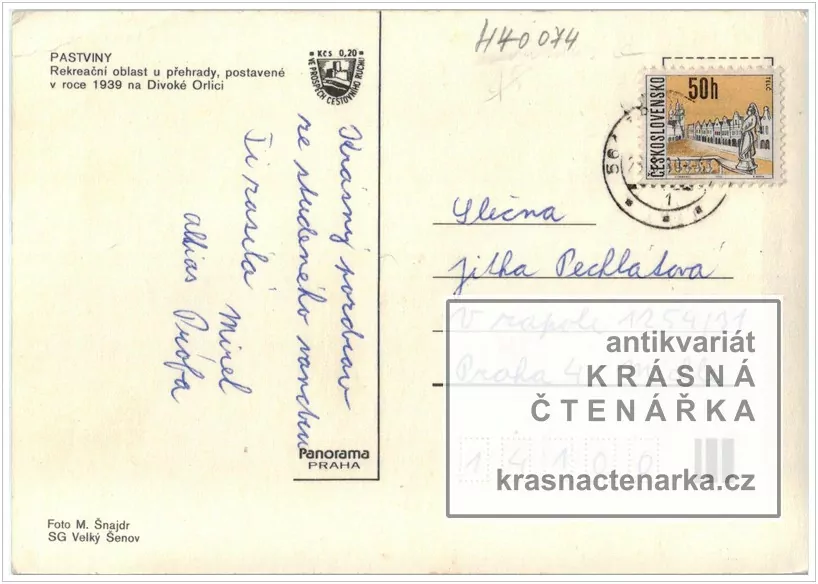 PASTVINY
Rekreační oblast u přehrady, postavené
v roce 1939 na Divoké Orlici
Kčs 0,20
VE PROSPĚCH CESTOVNÍHO RUCHU
H40074
ČESKOSLOVENSKO
50h
TELČ
56
1
Krásný pozdrav
ze studeného vandru
Ti zasílá
Mirel
alias Prófa
Slečna
Jitka Pechlátová
V zápolí 1254/21
Praha 4
14100
antikvariát
KRÁSNÁ
ČTENÁŘKA
krasnactenarka.cz
Panorama
PRAHA
Foto M. Šnajdr
SG Velký Šenov